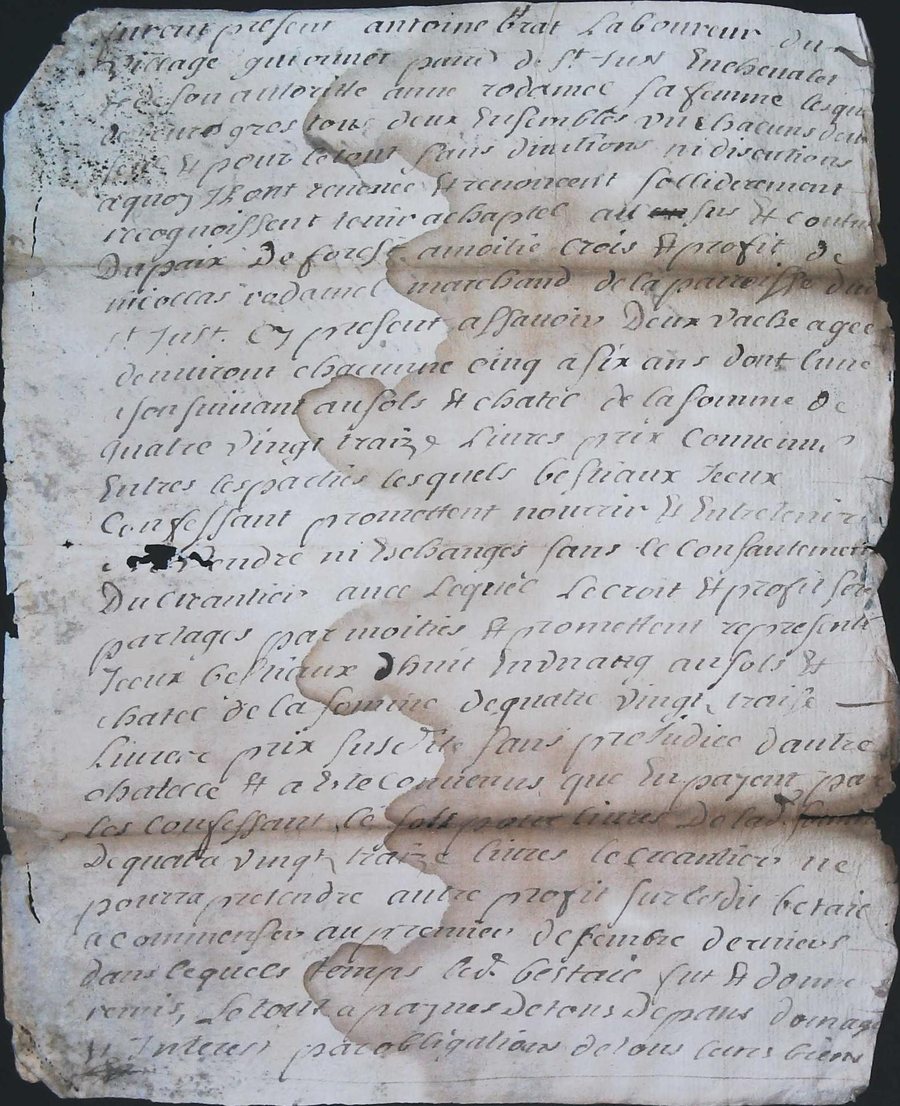 furent present antoine brat Laboureur du
Village guionnet paroi de St Just Enchevalet
& de son autoritte anne rodamel sa femme lesque
gres tous deux Ensembles Un chacuns deux
seul & pour le tout sans divitions ni discutions
a quoy Ils ont renoncé & renoncent sollideremont
recognoissent tenir a chaptel au sus & contu
Du païx De forest amoitié Crois & profit de
nicollas rodamel marchand de la parroisse dud
st Just. Cy present assavoir Deux vache agee
denviront chacunne cinq a six ans dont lune
a son suivant au sols & chatel de la somme De
quatre vingt traize Livres prix Convenu
Entres les parties lesquels bestiaux Iceux
Confessant promettent nourir & Entretenir
vendre ni Eschanges sans le Consantement
Du Creantier avec Lequel Le croit & profit sera
partages par moities & promettent represente
Iceux bestiaux Dhuit En Unancq au sols &
chatel de la somme de quatre vingt traise
Livres prix susdite sans prejudice dautre
chatele & a Este Convenus que En payent par
les Confessant le solt pour livres De lad. somme
De quatre vingt traize livres le creantier ne
pourra pretendre autre profit sur lesdit betail
a commenser au premier desembre derniers
dans lequels temps led. bestail fut & donne
remis, Le tout a paynes De tous Depans domage
& Interest par obligations de tous leurs biens